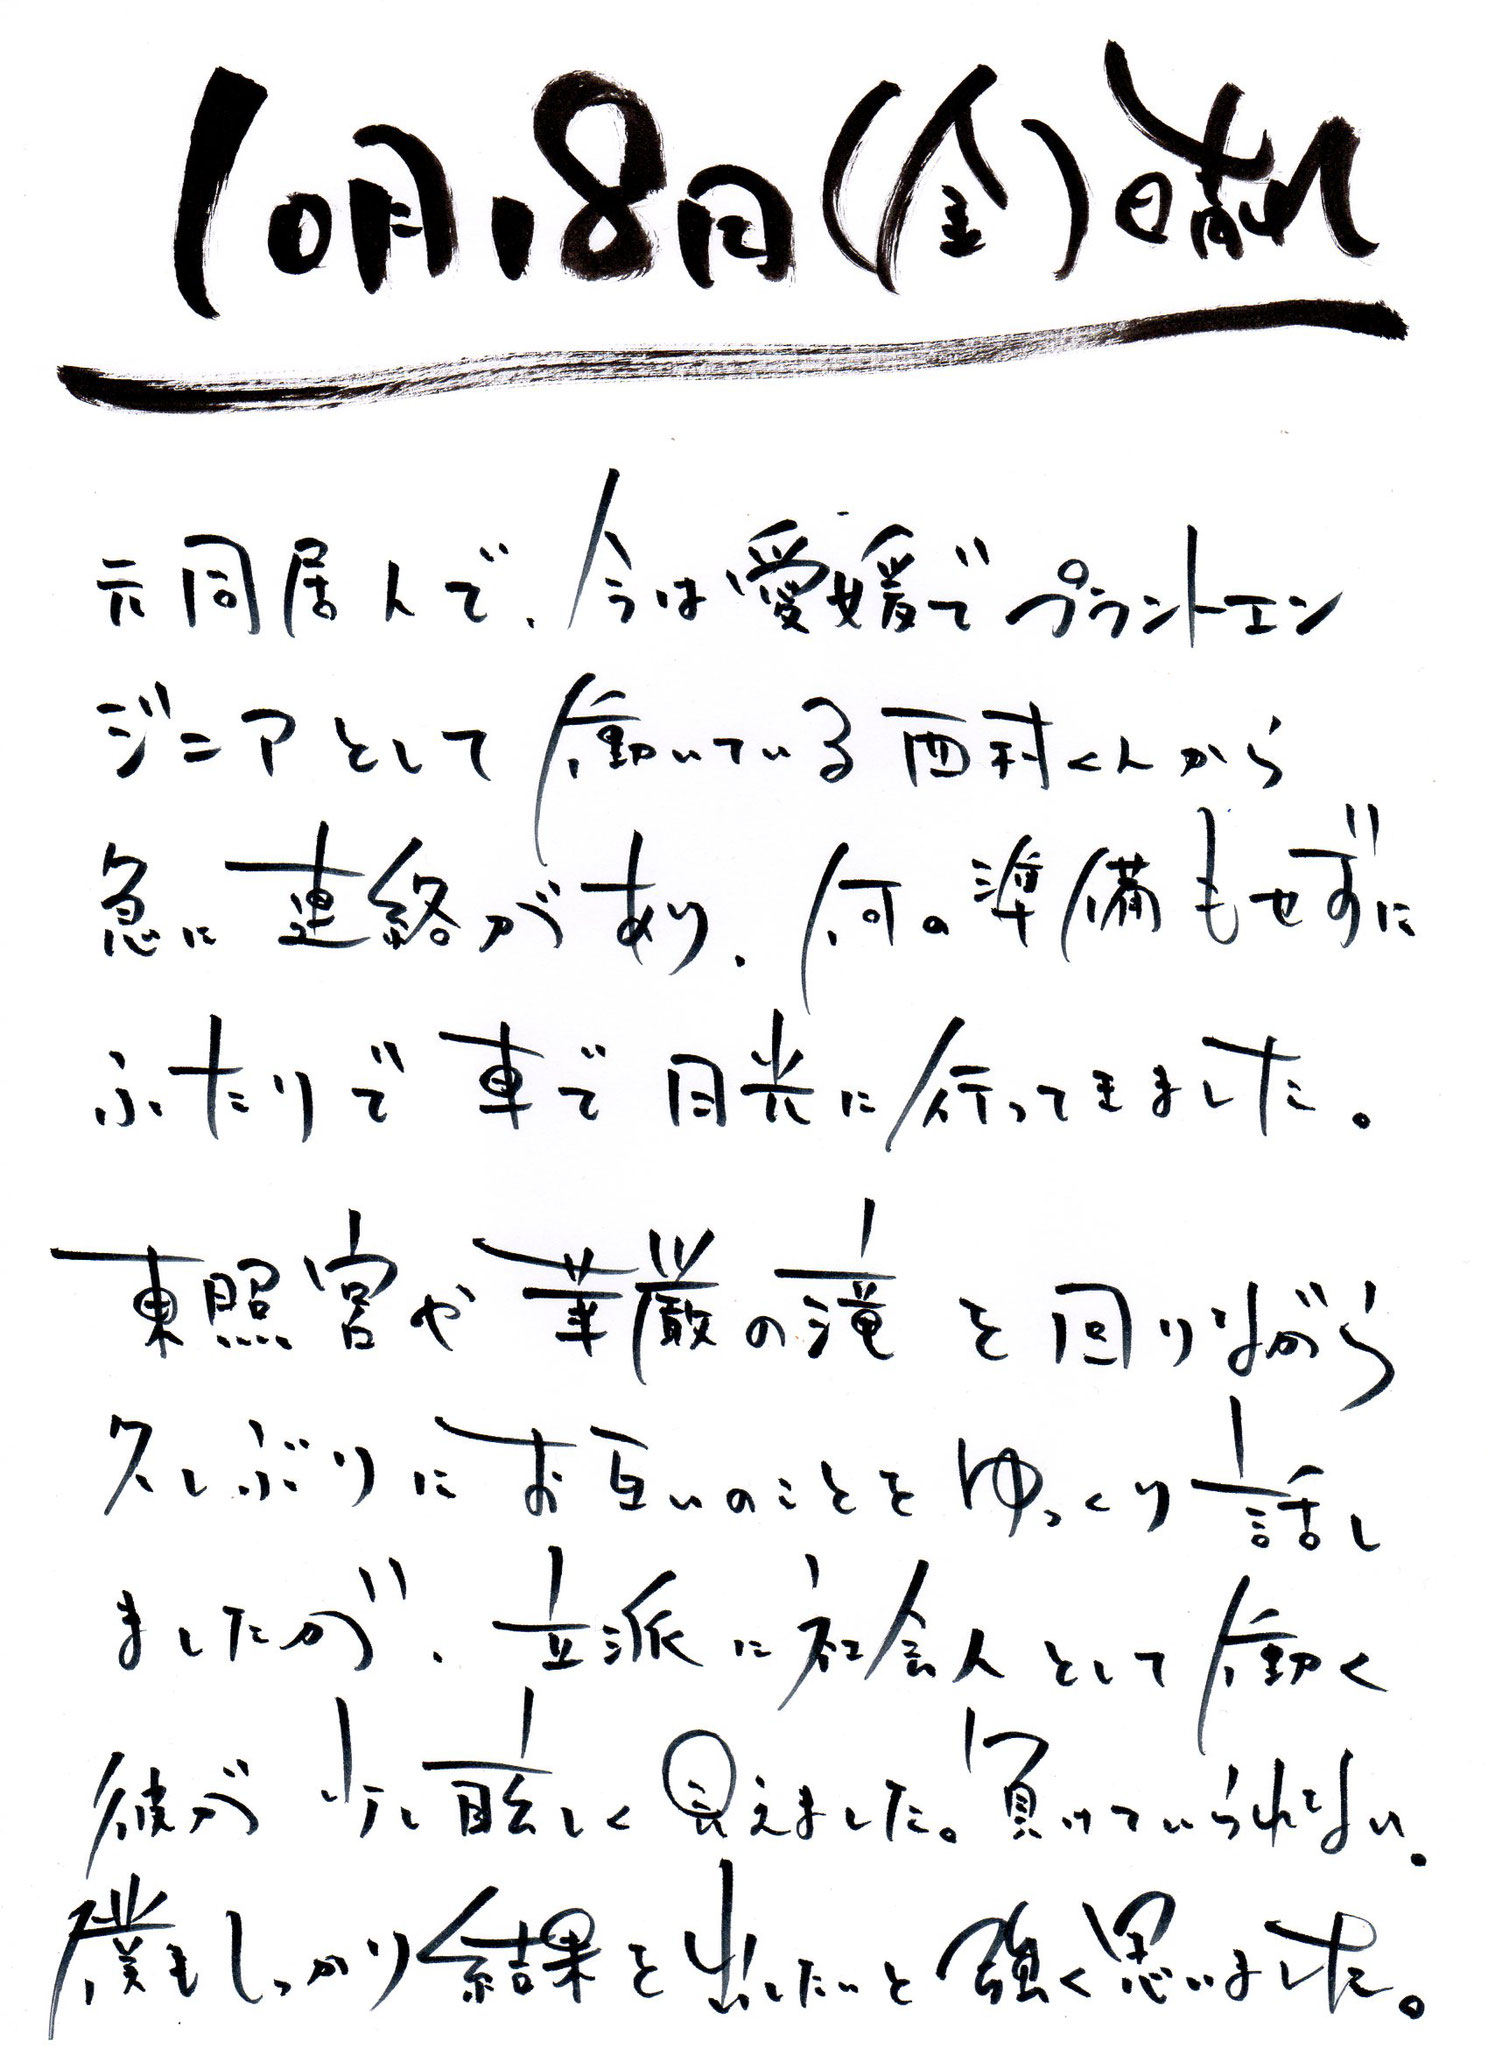 10月18日(金)晴れ
元同居人で、今は愛媛でプラントエン
ジニアとして働いている西村くんから
急に連絡があり、何の準備もせずに
ふたりで車で日光に行ってきました。
東照宮や華厳の滝を回りながら
久しぶりにお互いのことをゆっくり話し
ましたが、立派に社会人として働く
彼が少し眩しく見えました。負けていられない。
僕もしっかり結果を出したいと強く思いました。